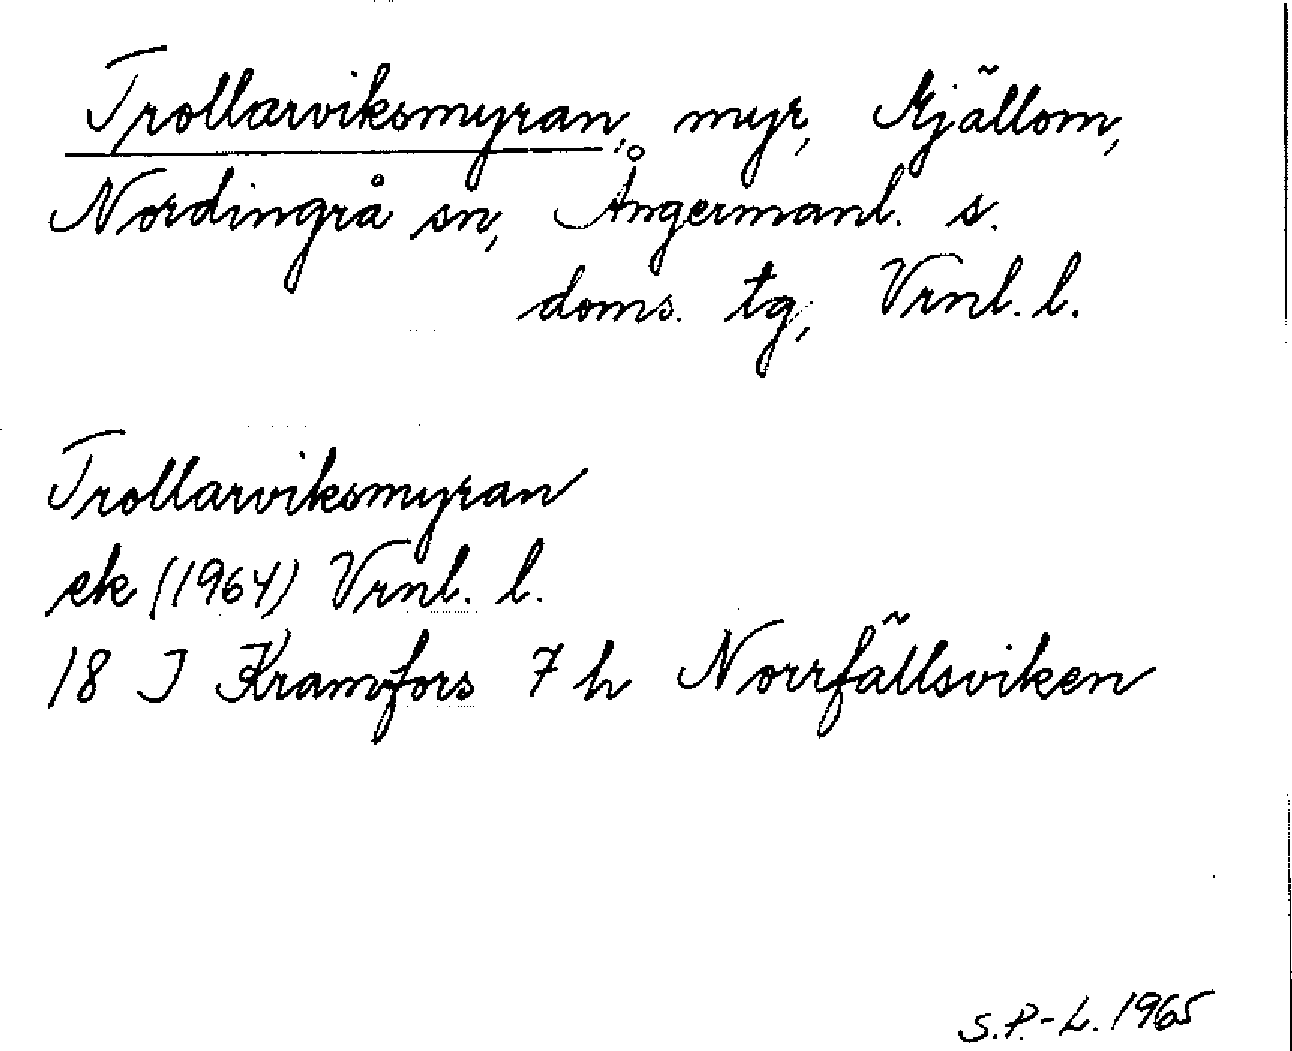 Trollarviksmyran, myr, Mjällom,
Nordingrå sn, Ångermanl. s.
doms. tg, Vrnl. l.
Trollarviksmyran
ek (1964) Vrnl. l.
18 J Kramfors 7 h Norrfällsviken
S.P.-L. 1965